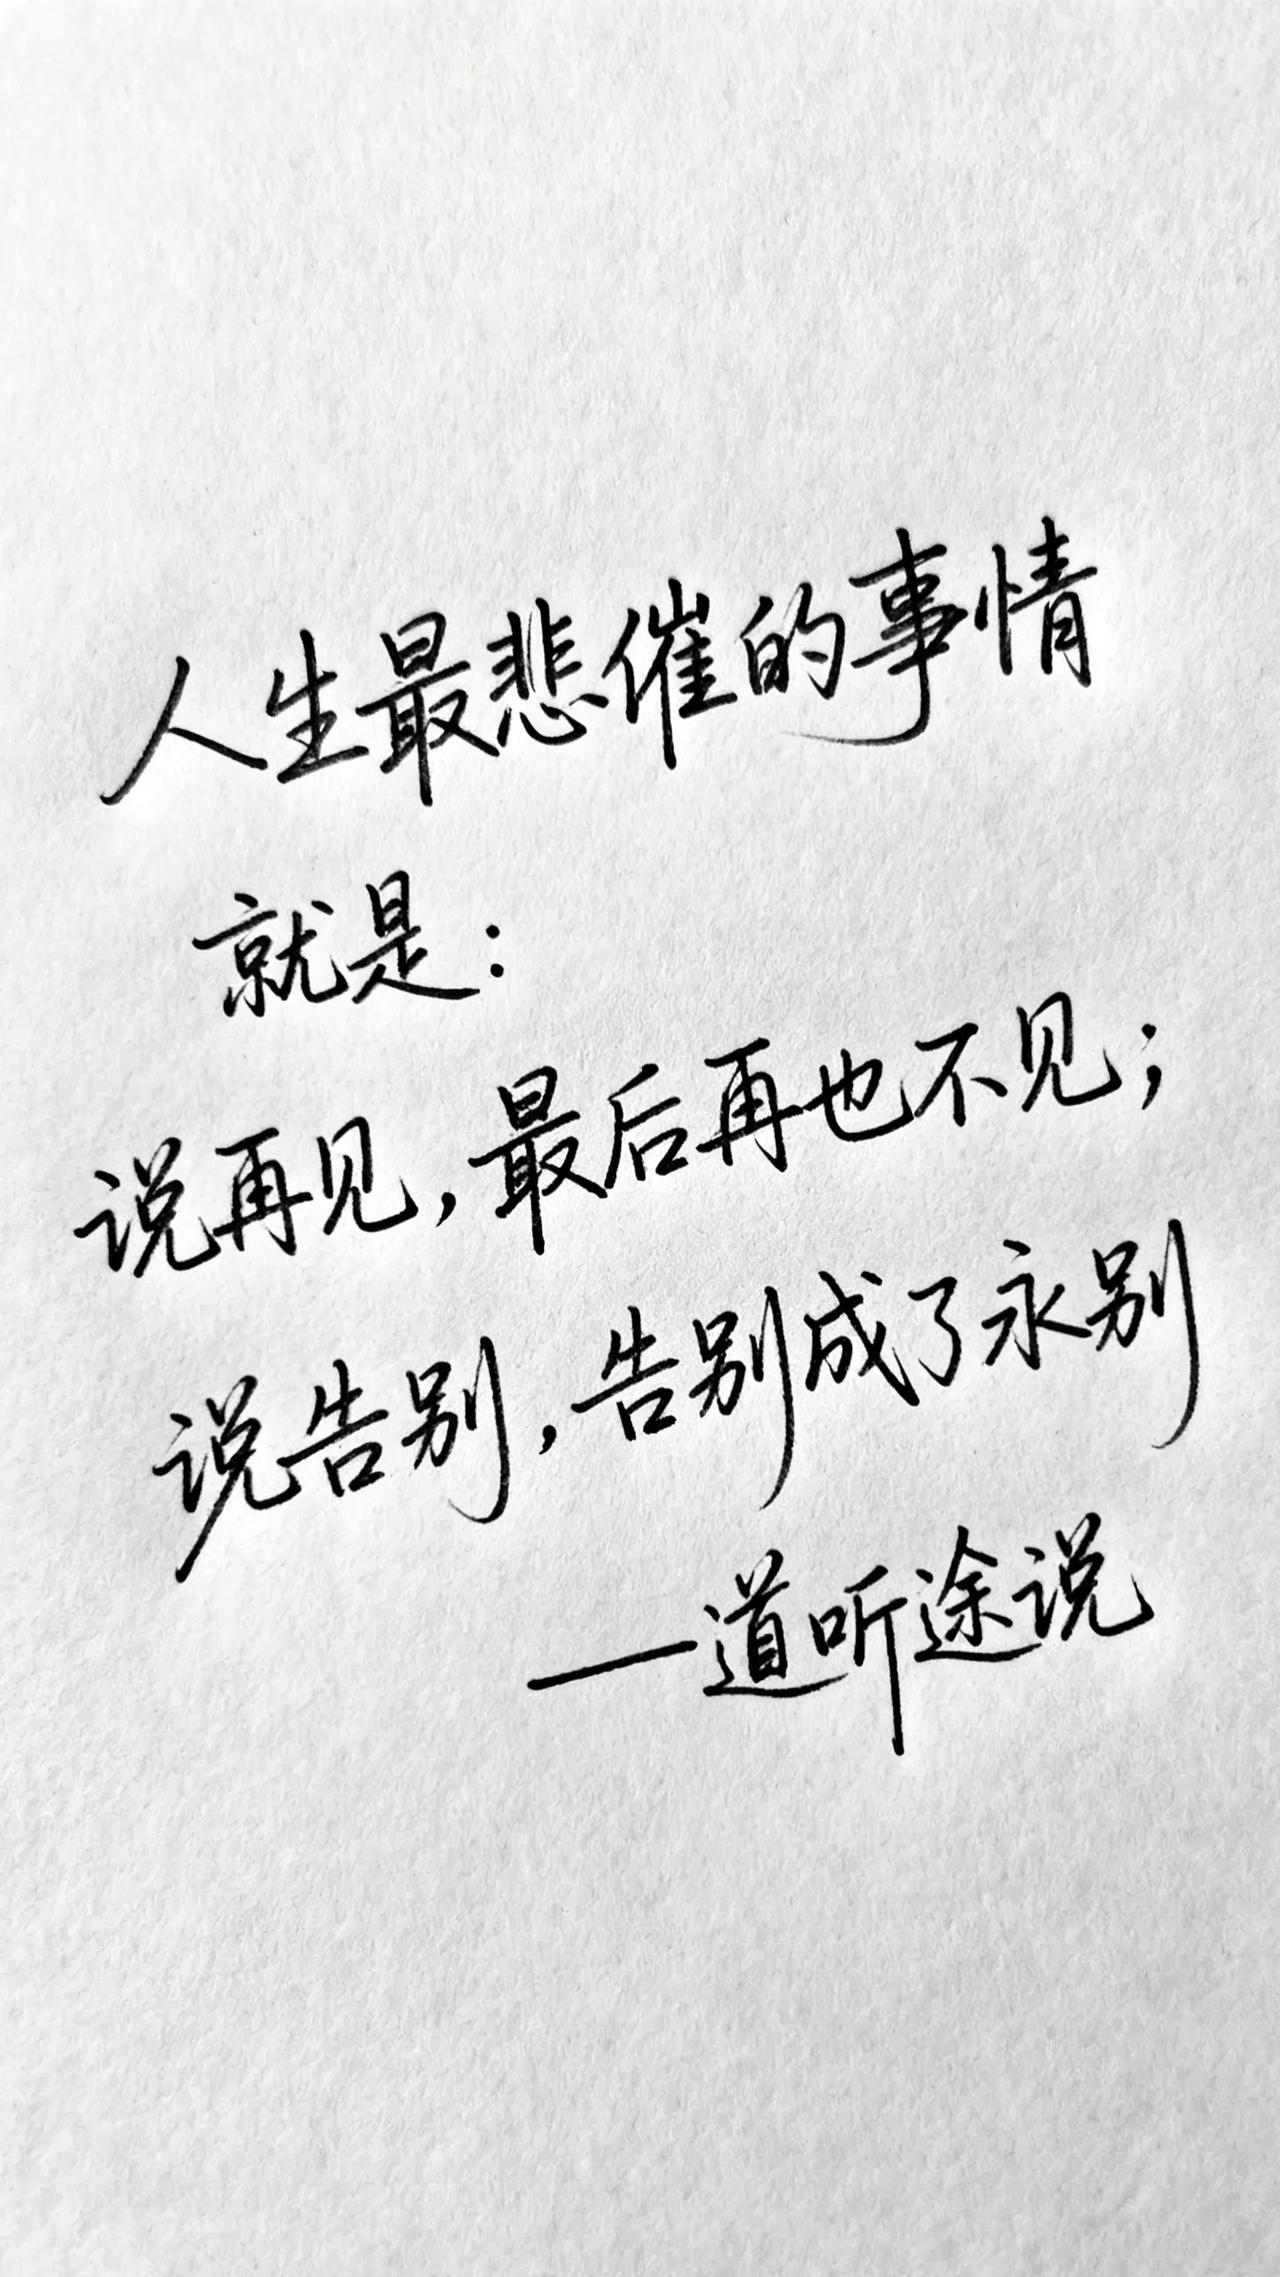 人生最悲催的事情
就是：
说再见，最后再也不见；
说告别，告别成了永别
—道听途说